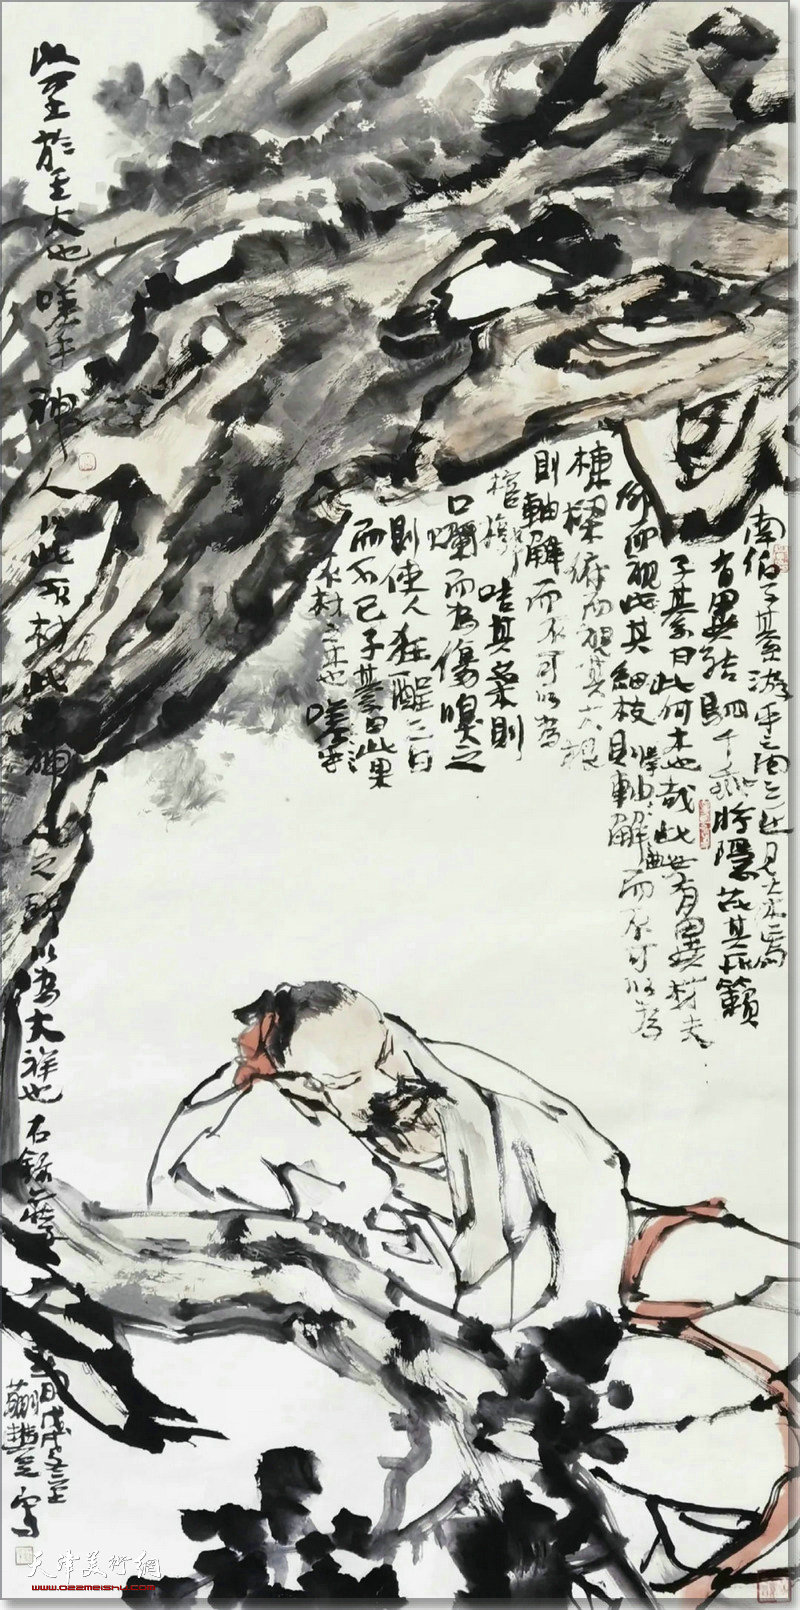 南伯子綦游乎商之丘見大木焉
有異結駟千乘將隱芘其所籟
子綦曰此何木也哉此必有異材夫
仰而視其細枝則軸解而不可以為
棟樑俯而視其大根
則軸解而不可以為
棺槨咶其葉則
口爛而為傷嗅之
則使人狂酲三日
而不已子綦曰此果
不材之木也嗟乎
此至於至大也嗟乎神人以此不材此神人之所以為大祥也 右錄莊子
戊戌冬至
寫
天津美術網
www.022meishu.com